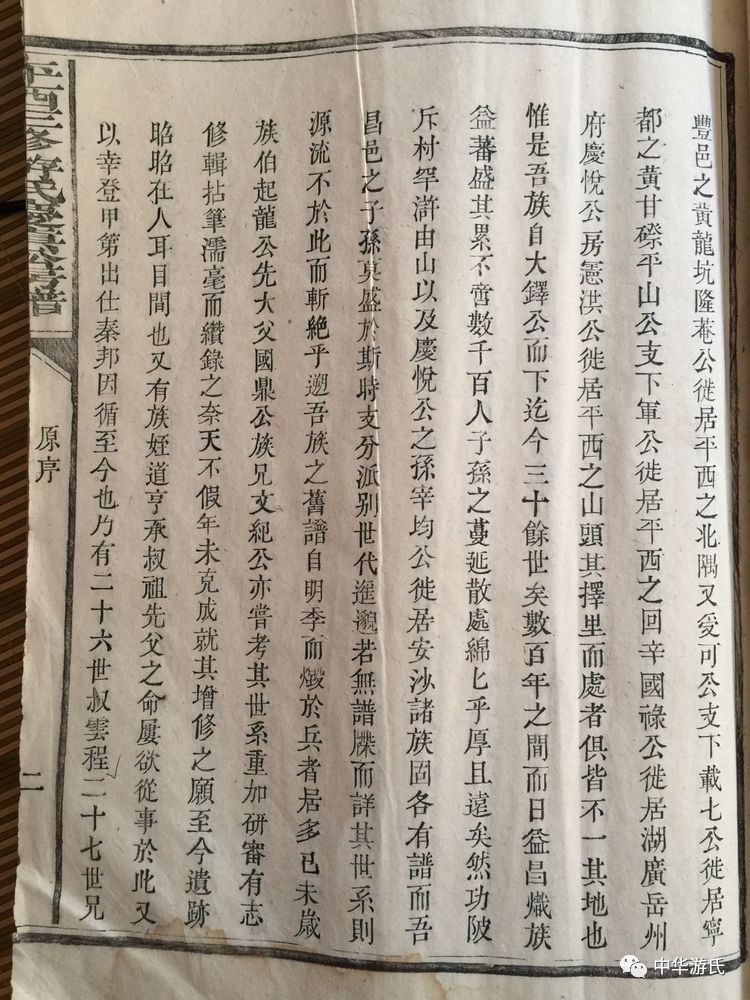 豐邑之黃龍坑隆菴公徙居平西之北隅又受可公支下載七公徙居寧
都之黃甘磜平山公支下軍公徙居平西之回辛國祿公徙居湖廣岳州
府慶悅公房憲洪公徙居平西之山頭其擇里而處者俱皆不一其地也
惟是吾族自大鐸公而下迄今三十餘世矣數百年之間而日益昌熾族
益蕃盛其累不啻數千百人子孫之蔓延散處綿匕乎厚且遠矣然功陂
斥村罕滸由山以及慶悅公之孫宰均公徙居安沙諸族固各有譜而吾
昌邑之子孫莫盛於斯時支分派别世代進邈若無譜牒而詳其世系則
源流不於此而斬絶乎遡吾族之舊譜自明季而燬於兵者居多已未歲
族伯起龍公先大父國鼎公族兄文紀公亦嘗考其世系重加研審有志
修輯拈筆濡毫而纘錄之奈天不假年未克成就其增修之願至今遺跡
昭昭在人耳目間也又有族姪道亨承叔祖先父之命屢欲從事於此又
以幸登甲第出仕秦邦因循至今也乃有二十六世叔雲程二十七世兄
原序
二
中华游氏